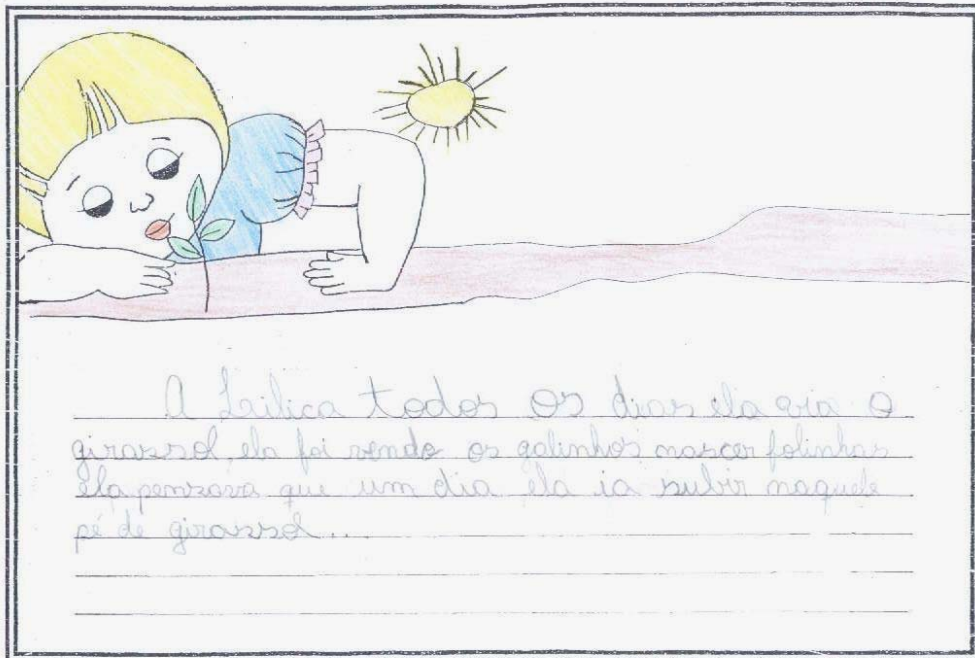 A Lilica todos os dias ela via o
girassol, ela foi vendo os galinhos nascer folinhas
ela penzava que um dia ela ia subir naquele
pé de girassol...